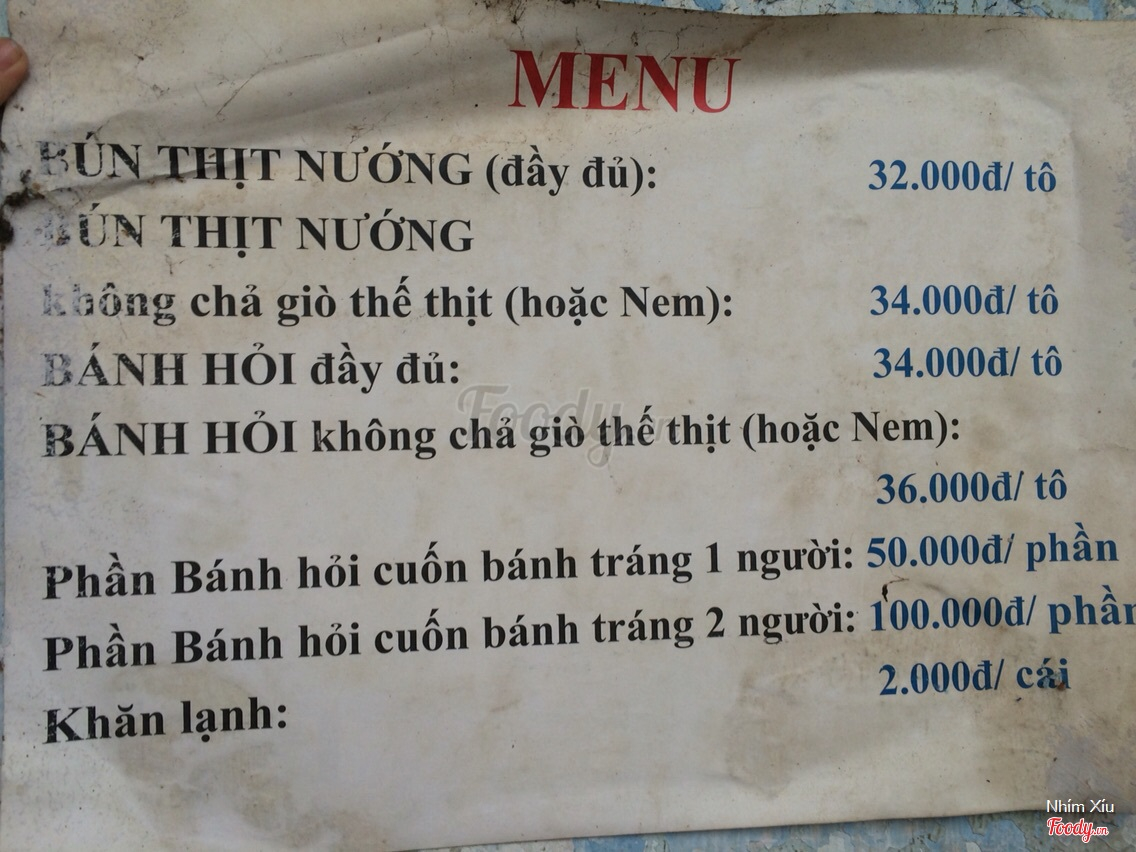 MENU
BÚN THỊT NƯỚNG (đầy đủ): 32.000đ/ tô
BÚN THỊT NƯỚNG
không chả giò thế thịt (hoặc Nem): 34.000đ/ tô
BÁNH HỎI đầy đủ: 34.000đ/ tô
BÁNH HỎI không chả giò thế thịt (hoặc Nem):
36.000đ/ tô
Phần Bánh hỏi cuốn bánh tráng 1 người: 50.000đ/ phần
Phần Bánh hỏi cuốn bánh tráng 2 người: 100.000đ/ phần
Khăn lạnh: 2.000đ/ cái
Foody.vn
Nhím Xíu
Foody.vn